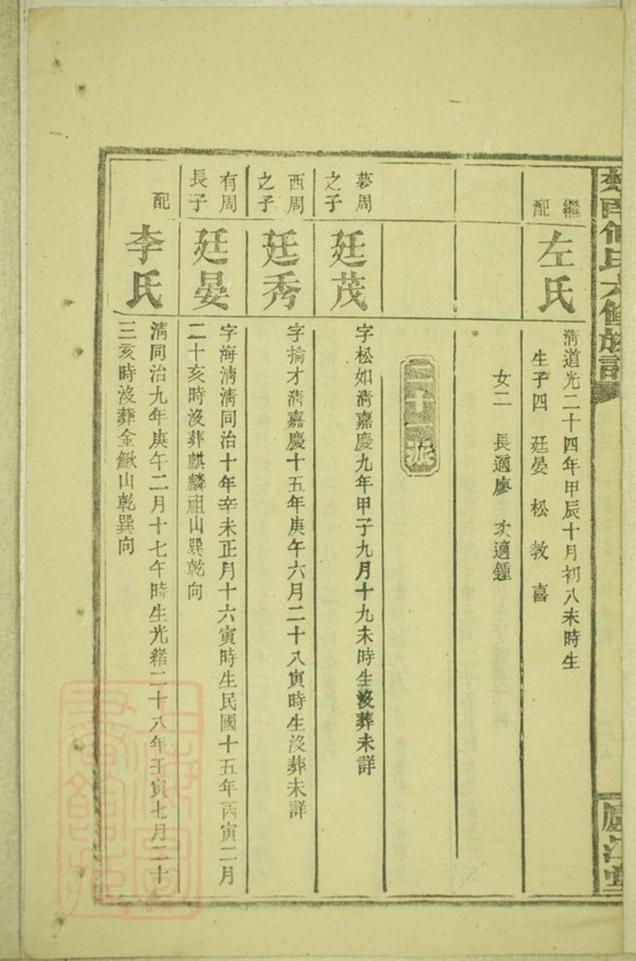 楚南何氏六修族譜
廬江堂
繼配
左氏
清道光二十四年甲辰十月初八未時生
生子四 廷晏 松 教 喜
女二 長適廖 次適鍾
夢周之子
廷茂
字松如清嘉慶九年甲子九月十九未時生沒葬未詳
西周之子
廷秀
字掄才清嘉慶十五年庚午六月二十八寅時生沒葬未詳
有周長子
廷晏
字海清清同治十年辛未正月十六寅時生民國十五年丙寅二月
二十亥時沒葬麒麟祖山巽乾向
配
李氏
清同治九年庚午二月十七午時生光緒二十八年壬寅七月二十
三亥時沒葬金鰍山乾巽向